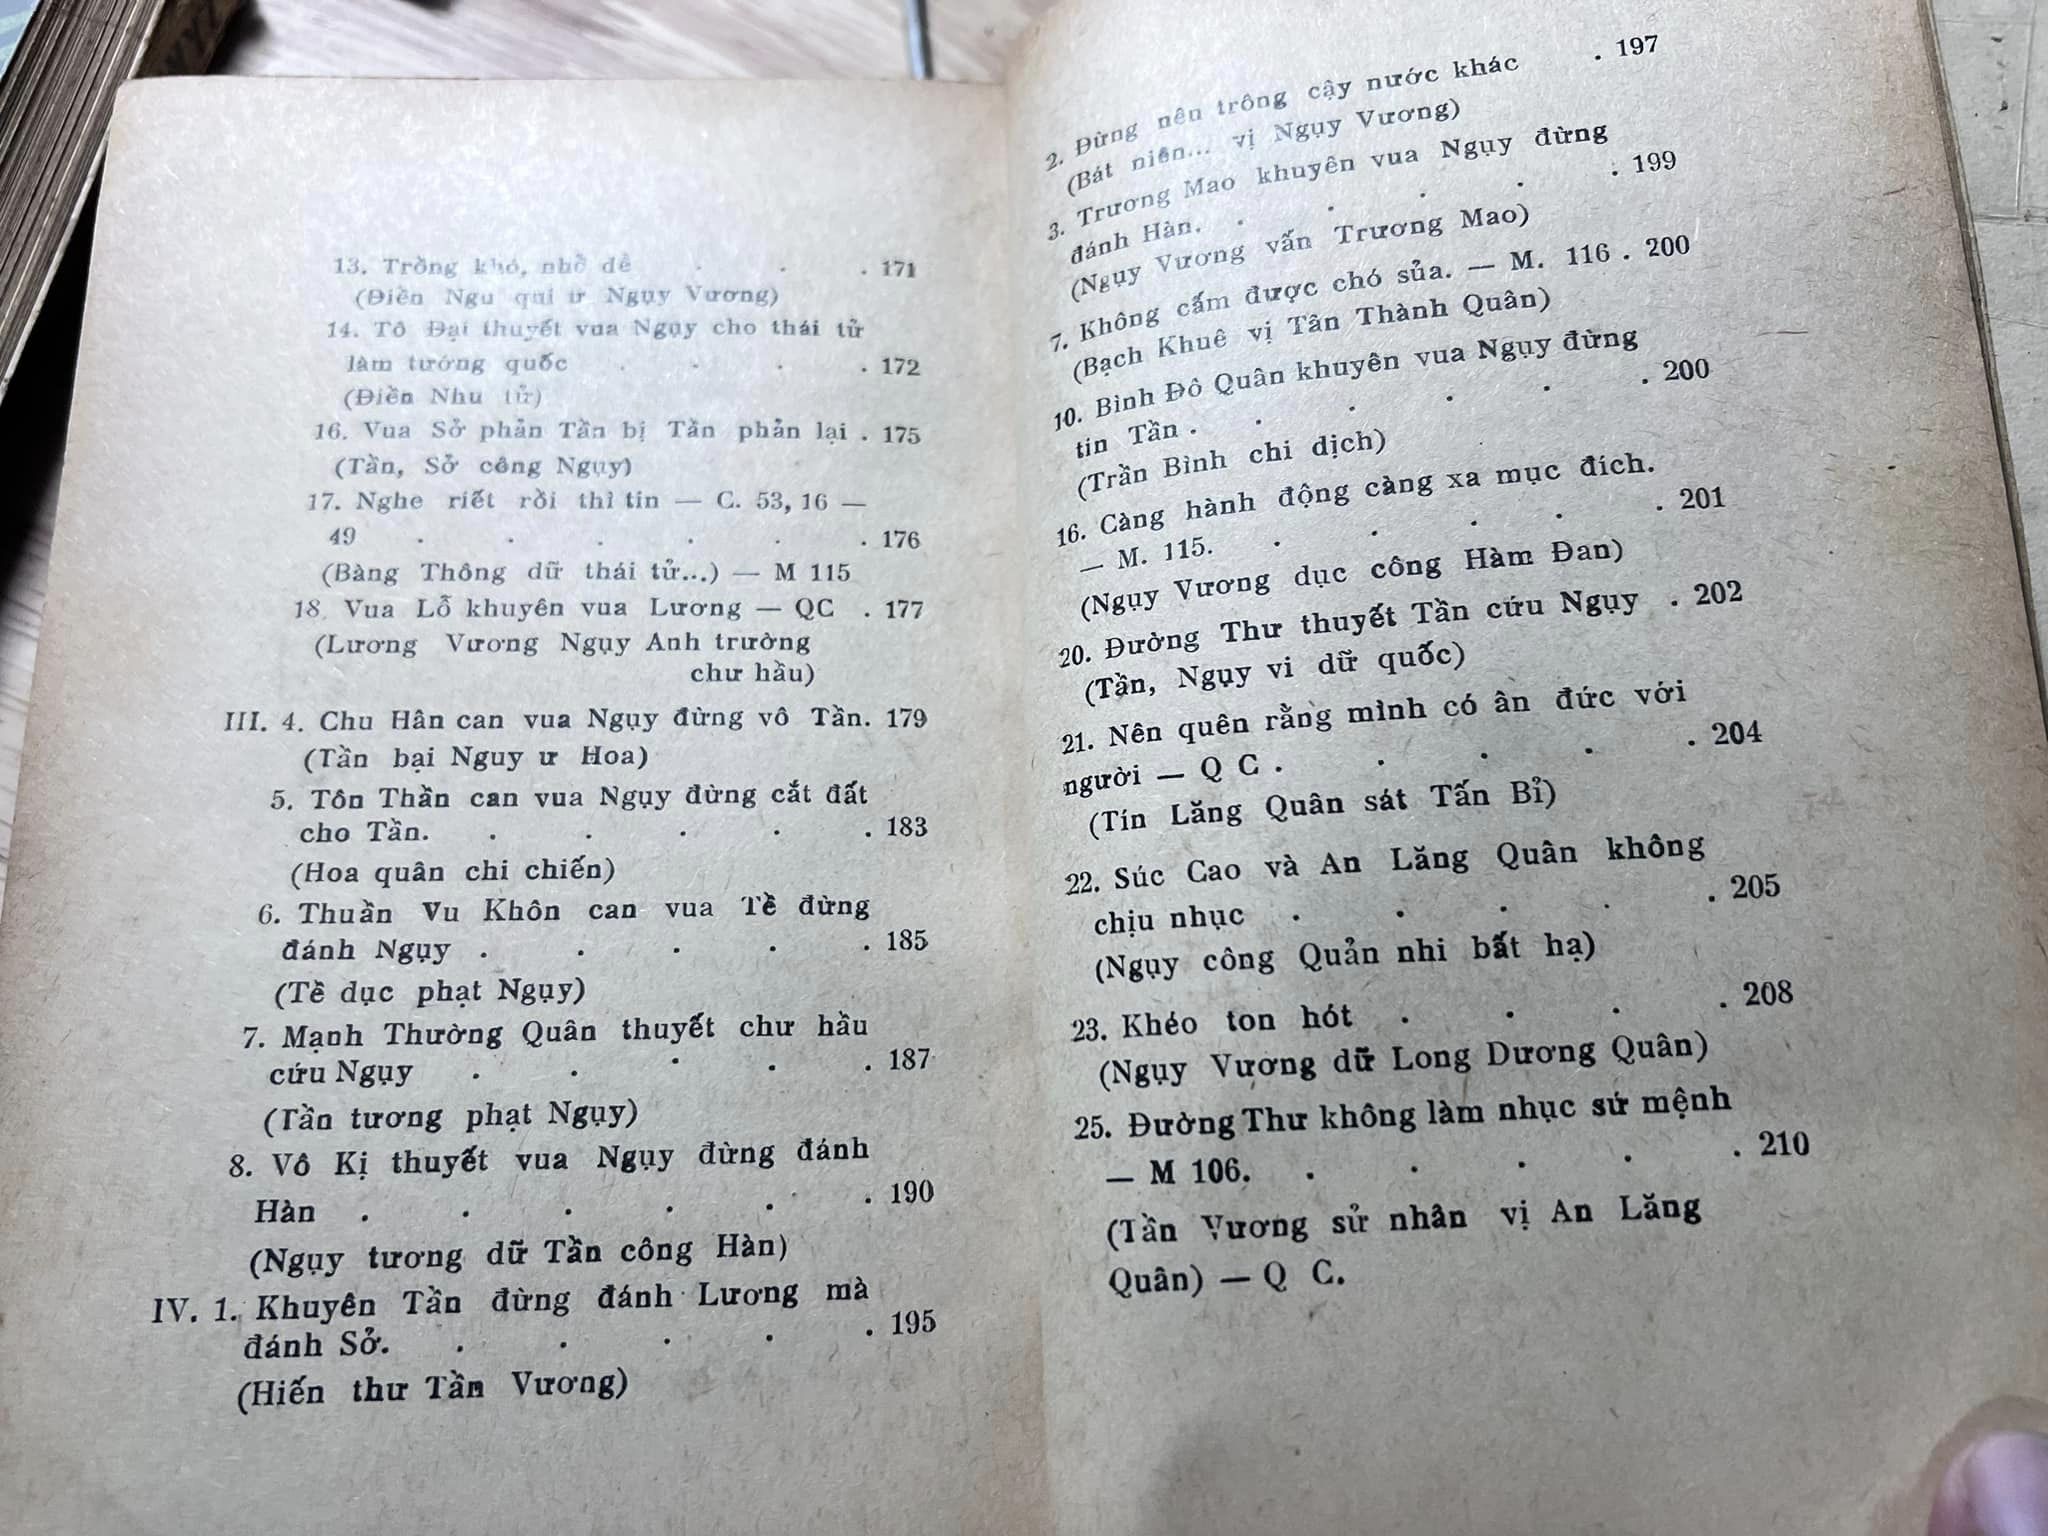 13. Trồng khó, nhổ dễ . . . 171
(Điền Nhu quí ư Ngụy Vương)
14. Tô Đại thuyết vua Ngụy cho thái tử
làm tướng quốc . . . . 172
(Điền Nhu tử)
16. Vua Sở phản Tần bị Tần phản lại . 175
(Tần, Sở công Ngụy)
17. Nghe riết rồi thì tin — C. 53, 16 —
49 . . . . . . 176
(Bàng Thông dữ thái tử...) — M 115
18. Vua Lỗ khuyên vua Lương — QC . 177
(Lương Vương Ngụy Anh trường
chư hầu)
III. 4. Chu Hân can vua Ngụy đừng vô Tần. 179
(Tần bại Nguy ư Hoa)
5. Tôn Thần can vua Ngụy đừng cắt đất
cho Tần. . . . . . 183
(Hoa quân chi chiến)
6. Thuần Vu Khôn can vua Tề đừng
đánh Ngụy . . . . . 185
(Tề dục phạt Ngụy)
7. Mạnh Thường Quân thuyết chư hầu
cứu Ngụy . . . . . 187
(Tần tương phạt Ngụy)
8. Vô Kị thuyết vua Ngụy đừng đánh
Hàn . . . . . . 190
(Ngụy tương dữ Tần công Hàn)
IV. 1. Khuyên Tần đừng đánh Lương mà
đánh Sở. . . . . . 195
(Hiến thư Tần Vương)
2. Đừng nên trông cậy nước khác . 197
(Bát niên... vị Ngụy Vương)
3. Trương Mao khuyên vua Ngụy đừng
đánh Hàn. . . . . . 199
(Ngụy Vương vấn Trương Mao)
7. Không cấm được chó sủa. — M. 116 . 200
(Bạch Khuê vị Tân Thành Quân)
10. Bình Đô Quân khuyên vua Ngụy đừng
tin Tần . . . . . . 200
(Trần Bình chi dịch)
16. Càng hành động càng xa mục đích.
— M. 115. . . . . . 201
(Ngụy Vương dục công Hàm Đan)
20. Đường Thư thuyết Tần cứu Ngụy . 202
(Tần, Ngụy vi dữ quốc)
21. Nên quên rằng mình có ân đức với
người — Q C . . . . . 204
(Tín Lăng Quân sát Tấn Bỉ)
22. Súc Cao và An Lăng Quân không
chịu nhục . . . . . 205
(Ngụy công Quản nhi bất hạ)
23. Khéo ton hót . . . . 208
(Ngụy Vương dữ Long Dương Quân)
25. Đường Thư không làm nhục sứ mệnh
— M 106. . . . . . 210
(Tần Vương sử nhân vị An Lăng
Quân) — Q C.